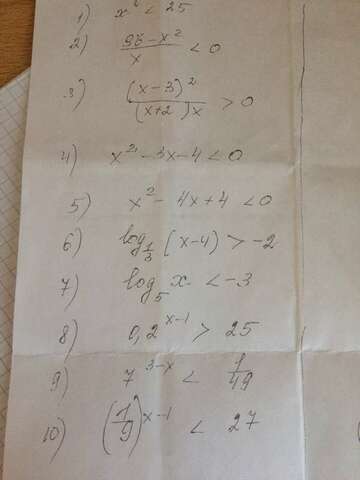 1) x² < 25
2) (36-x²)/x < 0
3) (x-3)²/((x+2)x) > 0
4) x²-3x-4<0
5) x²-4x+4 <0
6) log_{1/3} (x-4) > -2
7) log_5 x < -3
8) 0,2^{x-1} > 25
9) 7^{3-x} < 1/49
10) (1/9)^{x-1} < 27